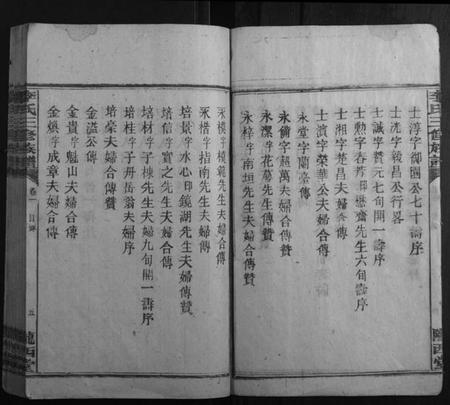 李氏三修族譜
士淳字御園公七十壽序
士洸字毅昌公行畧
士誠字贊元七旬開一壽序
士勲字春芳曰懋齋先生六旬壽序
士湘字楚昌夫婦合傳
士濱字榮華公夫婦合傳
永堂字蘭亭傳
永倚字超萬夫婦合傳贊
永潔字花菴先生傳贊
永梓字南垣先生夫婦合傳贊
永模字範先生夫婦合傳贊
永楷字指南先生夫婦傳
培景字水心曰鏡湖先生夫婦傳贊
培信字實之先生夫婦合傳
培材字子棟先生夫婦九旬開一壽序
培桂字子丹岳翁夫婦序
培豪夫婦合傳贊
金溢公傳
金貴字魁山夫婦合傳
金縝字成章夫婦合傳
李氏三修族譜
卷一
目錄
五
隴西堂
隴西堂